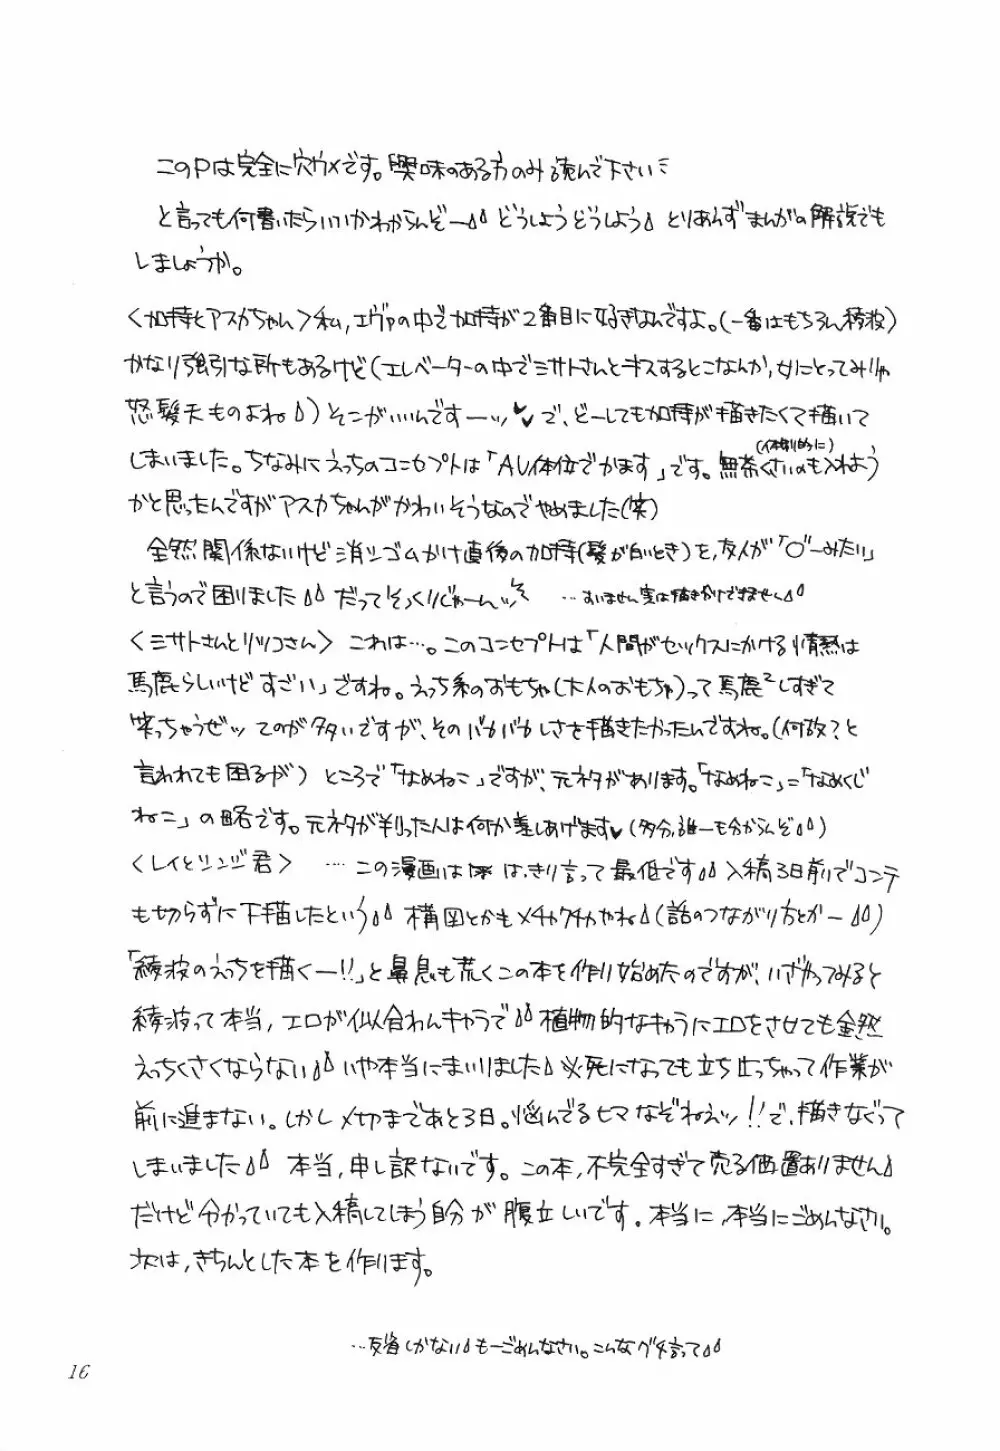 このPは完全に穴ウメです。興味のある方のみ読んで下さいミ
と言っても何書いたらいいかわからんぞー どうしようどうしよう とりあえずまんがの解説でも
しましょうか。
〈加持とアスカちゃん〉私,エヴァの中で加持が2番目に好きなんですよ。(一番はもちろん綾波)
かなり強引な所もあるけど(エレベーターの中でミサトさんとキスするとこなんか,女にとってみりゃ
怒髪天ものよね)そこがいいんですーッ♥で、どーしても加持が描きたくて描いて
しまいました。ちなみにえっちのコンセプトは「AV体位でかます」です。無茶くさいのも入れよう
(体制的に)
かと思ったんですがアスカちゃんがかわいそうなのでやめました(笑)
全然関係ないけど消シゴムかけ直後の加持(髪が白いとき)を,友人が「 ーみたい」
と言うので困りました だってそっくりじゃーんッ …すいません実は描きかけできません
〈ミサトさんとリツコさん〉 これは…。このコンセプトは「人間がセックスにかける情熱は
馬鹿らしいけどすごい」ですね。えっち系のおもちゃ(大人のおもちゃ)って馬鹿²しすぎて
笑っちゃうぜッ てのが多いですが、そのバカバカしさを描きたかったんですね。(何故?と
言われても困るが) ところで「なめねこ」ですが、元ネタがあります。「なめねこ」=「なめくじ
ねこ」の略です。元ネタが判った人は何か差しあげます♥(多分,誰一も分からんぞ)
〈レイとシンジ君〉 …この漫画は はっきり言って最低です 入稿3日前でコンテ
も切らずに下描したという 構図とかもメチャクチャやね(話のつながり方とかー)
「綾波のえっちを描くー!!」と鼻息も荒くこの本を作り始めたのですが、いざやってみると
綾波って本当,エロが似合わんキャラで 植物的なキャラにエロをさせても全然
えっちくさくならない いや本当にまいりました 必死になっても立ち止っちゃって作業が
前に進まない。しかし〆切まであと3日。悩んでるヒマなぞねえッ!!で,描きなぐって
しまいました 本当,申し訳ないです。この本,不完全すぎて売る価値ありません
だけど分かっていても入稿してしまう自分が腹立しいです。本当に,本当にごめんなさい。
次は,きちんとした本を作ります。
…反省しかない もーごめんなさい。こんなグチ言って
16